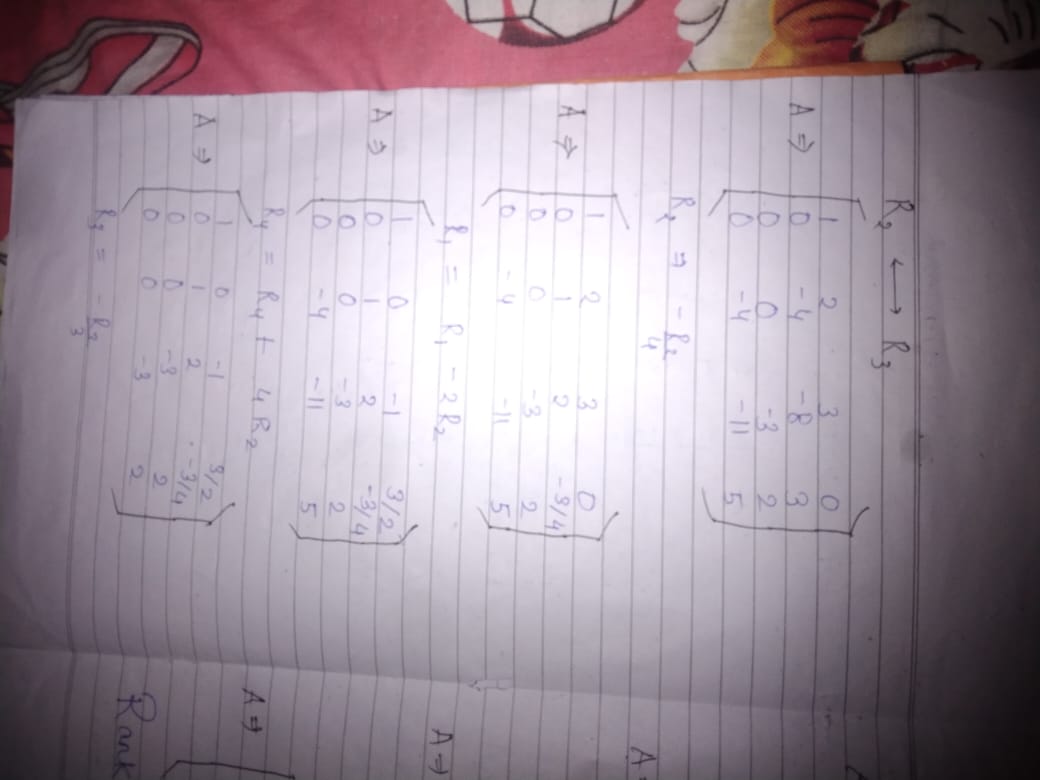 R2 ⟷ R3
A ⇒ [ 1 2 3 0
0 -4 -8 3
0 0 -3 2
0 -4 -11 5 ]
R2 ⇒ -R2/4
A ⇒ [ 1 2 3 0
0 1 2 -3/4
0 0 -3 2
0 -4 -11 5 ]
R1 = R1 - 2R2
A ⇒ [ 1 0 -1 3/2
0 1 2 -3/4
0 0 -3 2
0 -4 -11 5 ]
R4 = R4 + 4R2
A ⇒ [ 1 0 -1 3/2
0 1 2 -3/4
0 0 -3 2
0 0 -3 2 ]
R3 = -R3/3
A ⇒
A ⇒
Rank